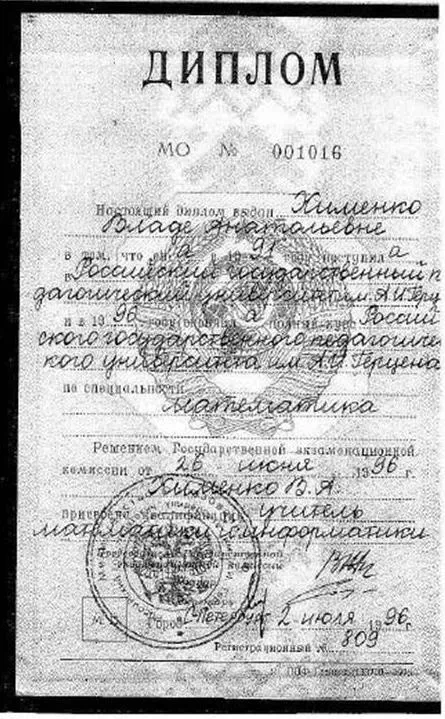 ДИПЛОМ
МО № 001016
Настоящий диплом выдан Хименко
Владе Анатольевне
в том, что он а в 1991 году поступил а
в Российский государственный п
дагогический университет им. А.И. Герц
и в 1996 году окончил а полный курс Россий
ского государственного педагогиче
кого университета им. А.И. Герцена
по специальности
математика
Решением Государственной экзаменационной
комиссии от 26 июня 1996 г.
Хименко В.А.
присвоена квалификация учитель
математики и информатики
Председатель Государственной
экзаменационной комиссии
Ректор
М.
Город С-Петербург 2 июля 1996 г.
Регистрационный № 809